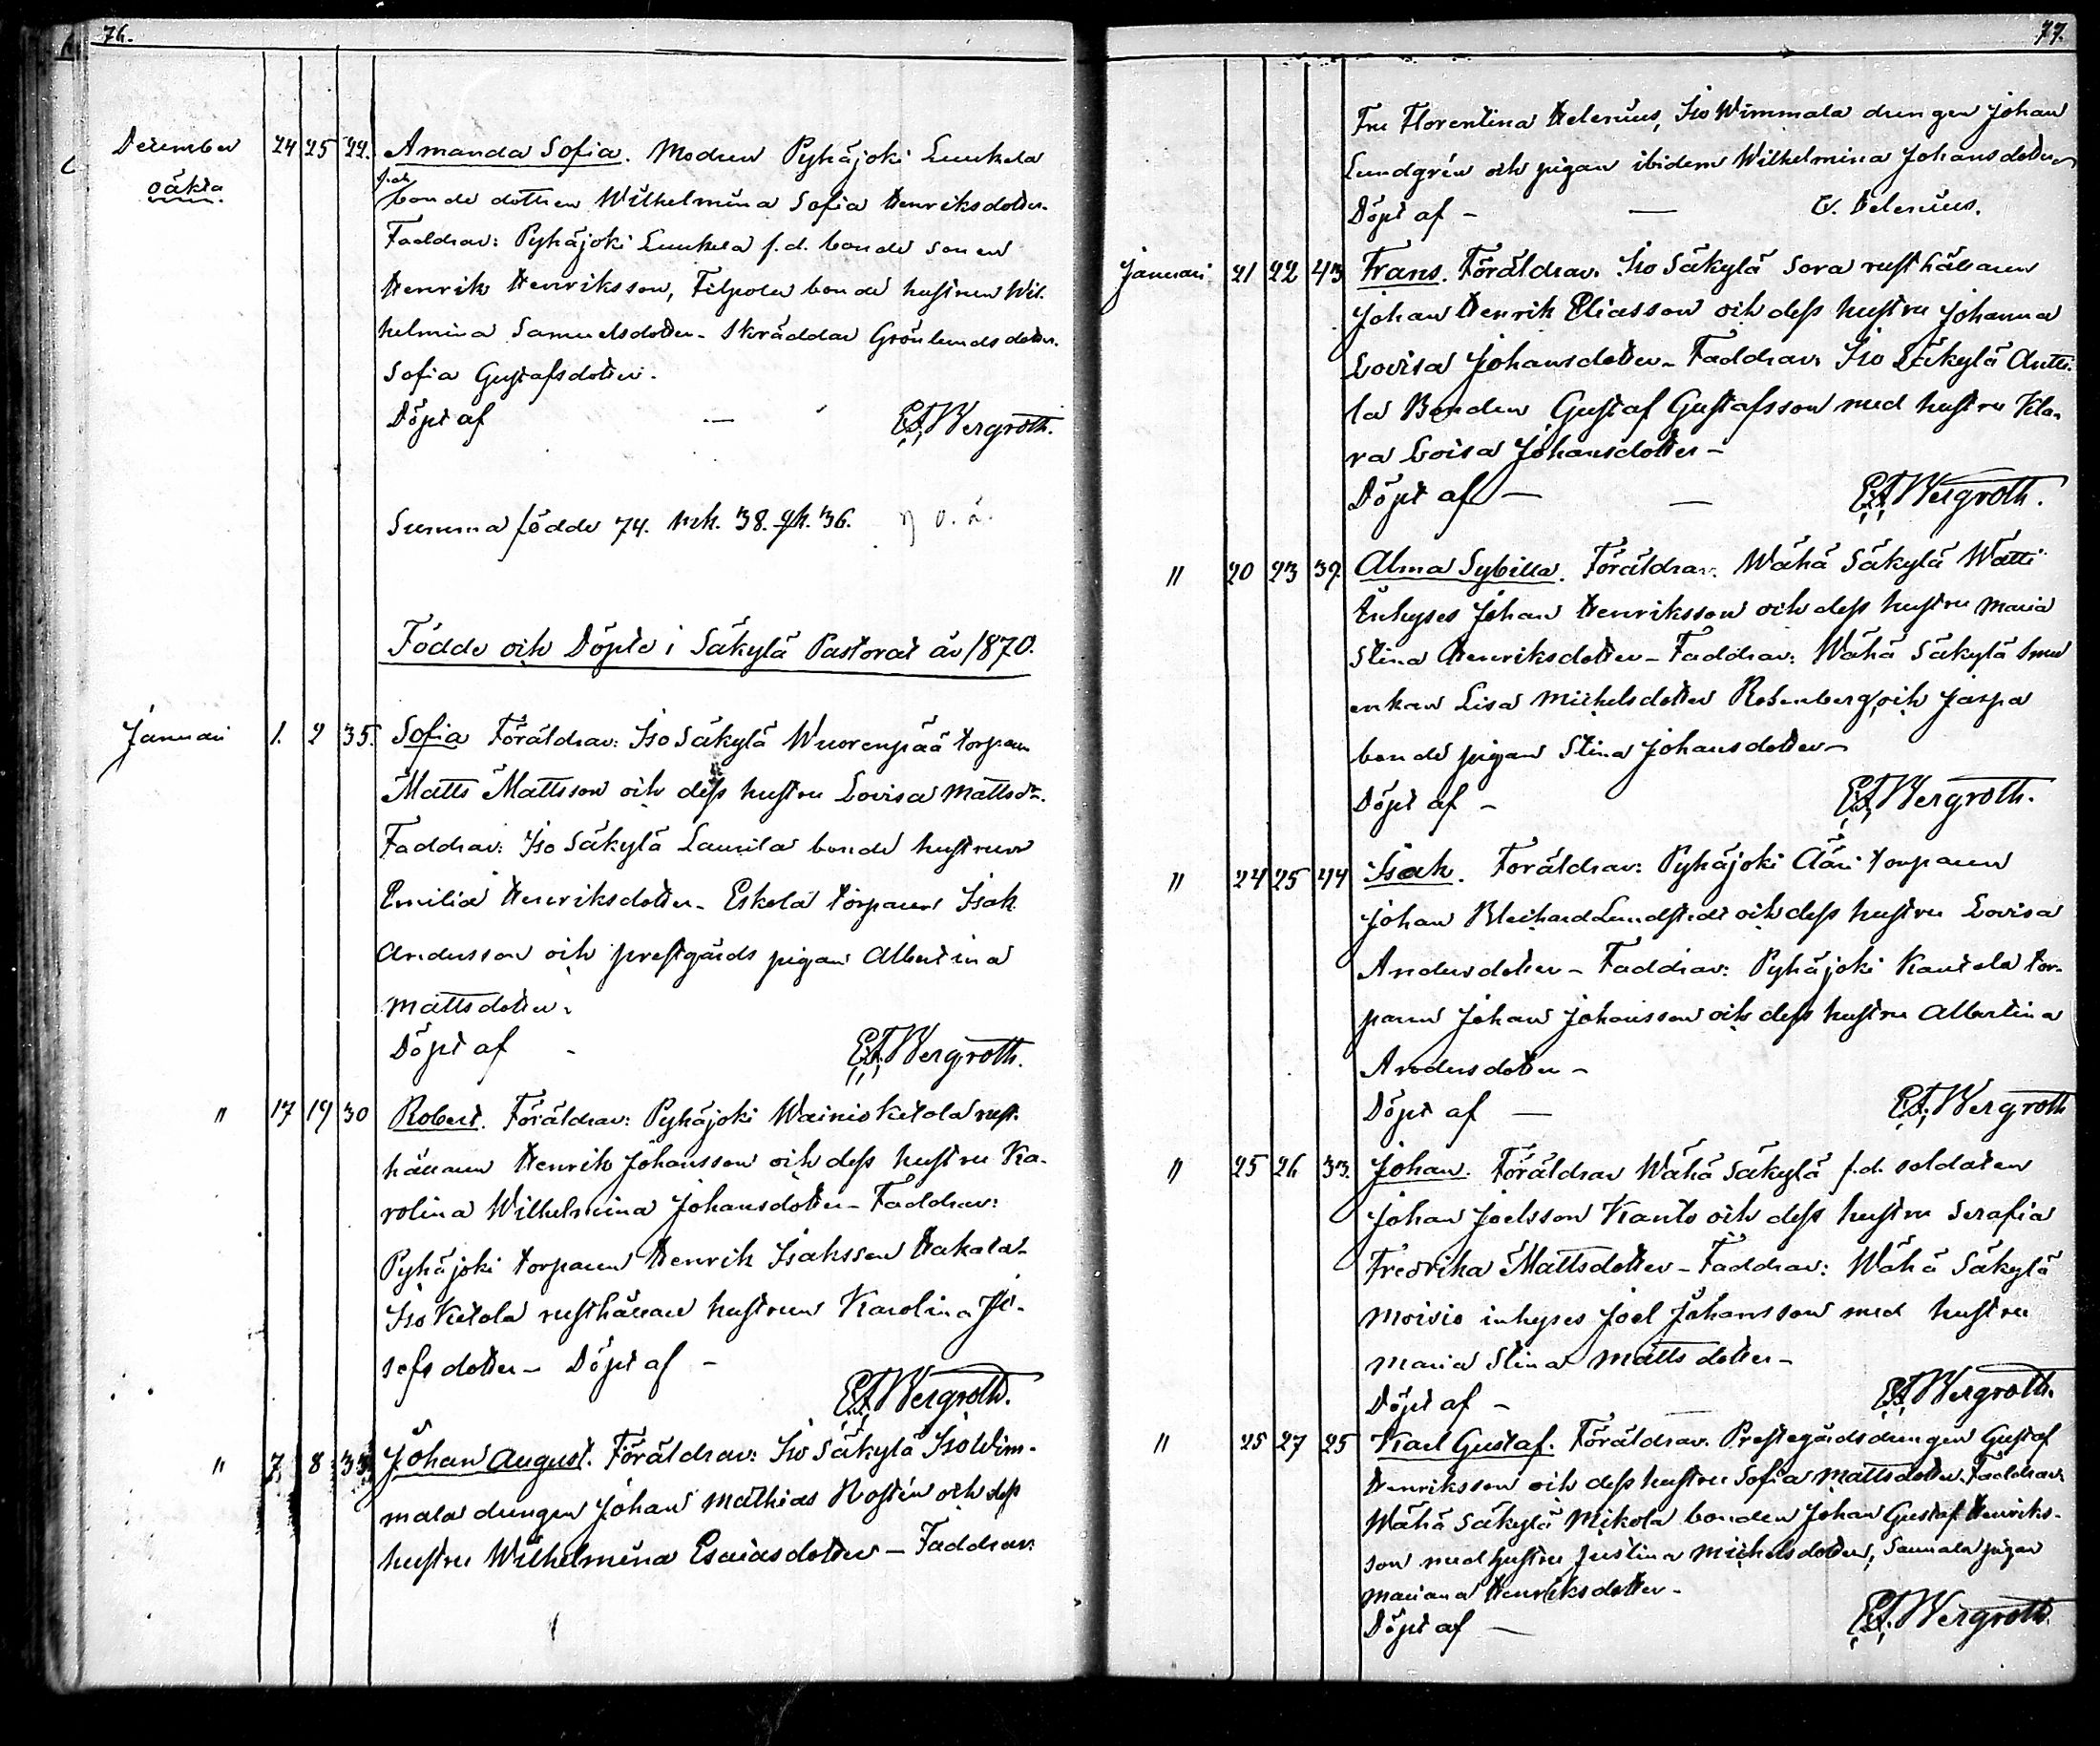 76.
December 24 25 22. Amanda Sofia. Modren Pyhäjoki Luukela
oäkta f.d. bonde dottren Wilhelmina Sofia Henriksdotter.
Faddrar: Pyhäjoki Luukela f.d. bonde sonen
Henrik Henriksson, Filpola bonde hustrun Wil-
helmina Samuelsdotter. Skräddar Grönlunds dotter.
Sofia Gustafsdotter.
Döpt af — E.F. Bergroth.
Summa födde 74. mk. 38. qk. 36. 7 o. ä.
Födde och Döpte i Säkylä Pastorat år 1870.
Januari 1. 2 35. Sofia Föräldrar: Iso Säkylä Wuorenpää torparn
Matts Mattsson och dess hustru Lovisa Mattsdr.
Faddrar: Iso Säkylä Laurila bonde hustrun
Emilia Henriksdotter. Eskola torparn Isak
Andersson och prestgårds pigan Albertina
Mattsdotter.
Döpt af - E.F. Bergroth.
" 17 19 30 Robert. Föräldrar: Pyhäjoki Wainio Ketola rust-
hållaren Henrik Johansson och dess hustru Ka-
rolina Wilhelmina Johansdotter - Faddrar:
Pyhäjoki torparen Henrik Isaksson Hakala-
Iso Ketola rusthållare hustrun Karolina Jo-
sefsdotter - Döpt af -
E.F. Bergroth.
" 7 8 33. Johan August. Föräldrar: Iso Säkylä Iso Wim-
mala drengen Johan Mathias Rostén och dess
hustru Wilhelmina Esaiasdotter - Faddrar:
77.
Fru Florentina Helenius, Iso Wimmala drengen Johan
Lundgrén och pigan ibidem Wilhelmina Johansdotter
Döpt af - — Helenius.
Januari 21 22 43 Frans. Föräldrar. Iso Säkylä Sora rusthållaren
Johan Henrik Eliasson och dess hustru Johanna
Lovisa Johansdotter - Faddrar: Iso Säkylä Antti-
la Bonden Gustaf Gustafsson med hustru Kla-
ra Loisa Johansdotter -
Döpt af — — E.F. Bergroth.
" 20 23 39. Alma Sybilla. Föräldrar. Wähä Säkylä Watti
Inhyses Johan Henriksson och dess hustru Maria
Stina Henriksdotter - Faddrar: Wähä Säkylä Smed
enkan Lisa Michelsdotter Rosenberg, och Jaspa
bonde pigan Stina Johansdotter -
Döpt af - E.F. Bergroth.
" 24 25 44 Isak. Foräldrar: Pyhäjoki Ääri torparen
Johan Lundstedt och dess hustru Lovisa
Andersdotter - Faddrar: Pyhäjoki Kautola tor-
paren Johan Johansson och dess hustru Albertina
Andersdotter -
Döpt af — E.F. Bergroth
" 25 26 33. Johan. Föräldrar Wähä Säkylä f.d. soldaten
Johan Joelsson Kanto och dess hustru Serafia
Fredrika Mattsdotter - Faddrar: Wähä Säkylä
Moisio inhyses Joel Johansson med hustru
Maria Stina Mattsdotter -
Döpt af - E.F. Bergroth.
" 25 27 25 Karl Gustaf. Föräldrar. Prestegårdsdrengen Gustaf
Henriksson och dess hustru Sofia Mattsdotter. Faddrar:
Wähä Säkylä Mikola bonden Johan Gustaf Henriks-
son med hustru Justina Michelsdotter, Sannala pigan
Mariana Henriksdotter -
Döpt af — E.F. Bergroth.